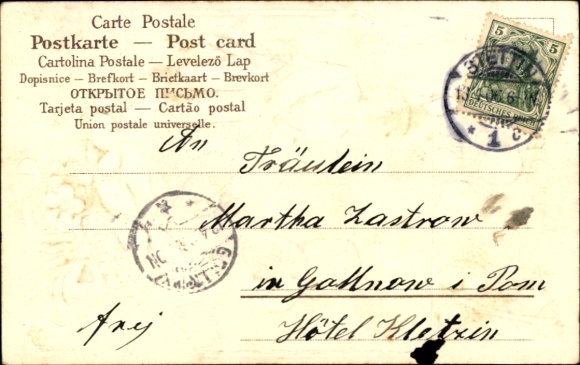 Carte Postale
Postkarte — Post card
Cartolina Postale — Levelező Lap
Dopisnice — Brefkort — Briefkaart — Brevkort
ОТКРЫТОЕ ПИСЬМО.
Tarjeta postal — Cartão postal
Union postale universelle.
5 5
DEUTSCHES REICH
STETTIN
* 1 c
An
Fräulein
Martha Zastrow
in Gollnow i Pom
Hôtel Kletzin